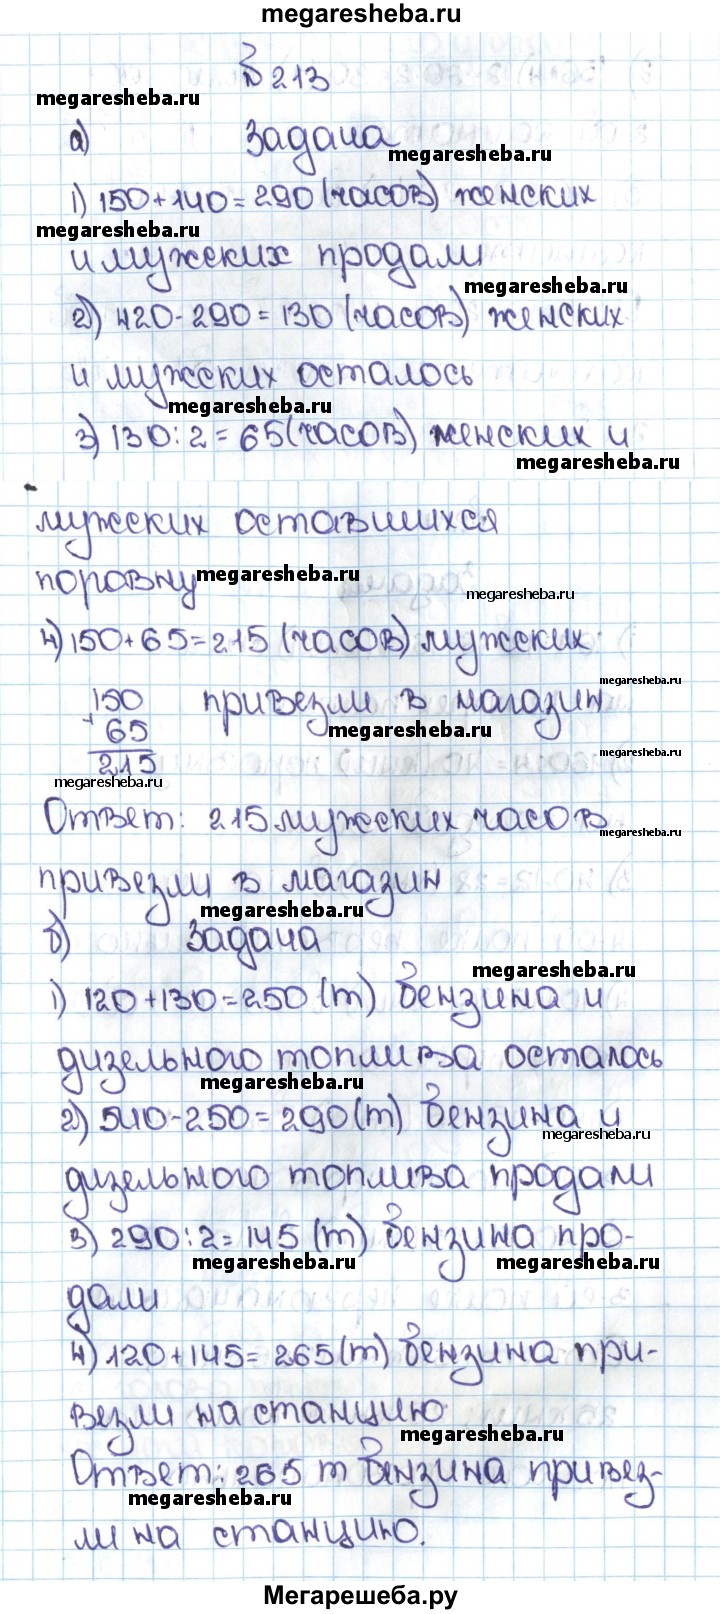 megaresheba.ru
№213
megaresheba.ru
а) Задача
megaresheba.ru
1) 150+140=290 (часов) женских
megaresheba.ru
и мужских продали
megaresheba.ru
2) 420-290=130 (часов) женских
и мужских осталось
megaresheba.ru
3) 130:2=65 (часов) женских и
megaresheba.ru
мужских оставшихся
поровну megaresheba.ru
megaresheba.ru
4) 150+65=215 (часов) мужских
megaresheba.ru
150 привезли в магазин
+ 65 megaresheba.ru
215 megaresheba.ru
megaresheba.ru
Ответ: 215 мужских часов
megaresheba.ru
привезли в магазин
megaresheba.ru
б) Задача
megaresheba.ru
1) 120+130=250 (т) бензина и
дизельного топлива осталось
megaresheba.ru
2) 540-250=290 (т) бензина и
megaresheba.ru
дизельного топлива продали
3) 290:2=145 (т) бензина про-
megaresheba.ru megaresheba.ru
дали
4) 120+145=265 (т) бензина при-
везли на станцию
megaresheba.ru
Ответ: 265 т бензина привез-
megaresheba.ru
ли на станцию.
Мегарешеба.ру